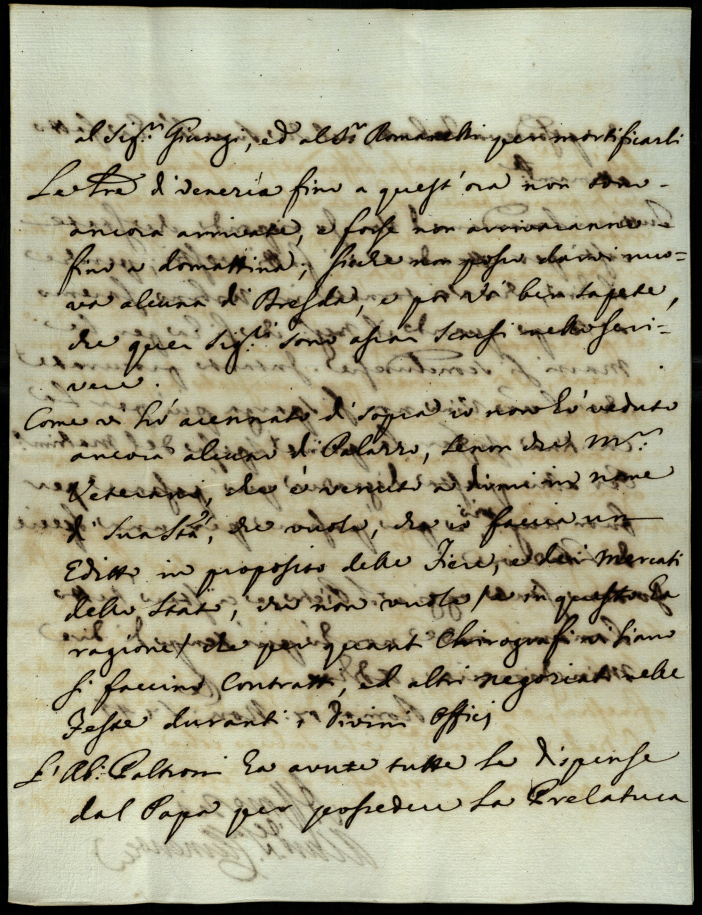 al Sig.r Giungi, ed al S.r Romanelli per mortificarli
Le Lre di Venezia fino a quest'ora non sono
ancora arrivate, e forse non arrivaranno
fino a domattina; sicche non posso darvi nuo=
va alcuna di Brescia, e poi Voi ben sapete,
che quei Sig.ri sono assai scarsi nello scri=
vere.
Come vi hò accennato di sopra io non hò veduto
ancora alcuno di Palazzo, senon che M.r
Veterani, che è venuto a dirmi in nome
di Sua Stà, che vuole, che io faccia un
Editto in proposito delle Fiere, e dei Mercati
dello Stato, che non vuole /e in questo ha
ragione/ che per quanti Chirografi vi siano
si faccino Contratti, ed altri negoziati nelle
Feste duranti i Divini Offici
L'Ab: Paltroni ha avute tutte le dispense
dal Papa per possedere la Prelatura